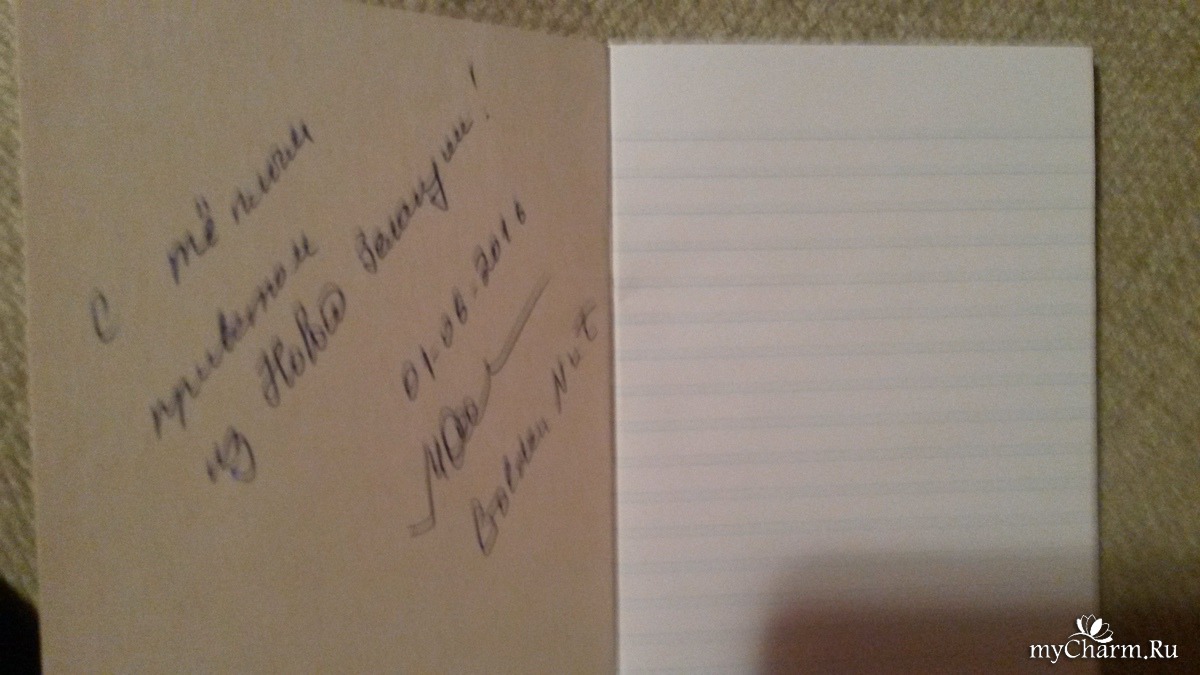 С тёплым
приветом
из Новой Зеландии!
01-06-2016
Nut
myCharm.Ru